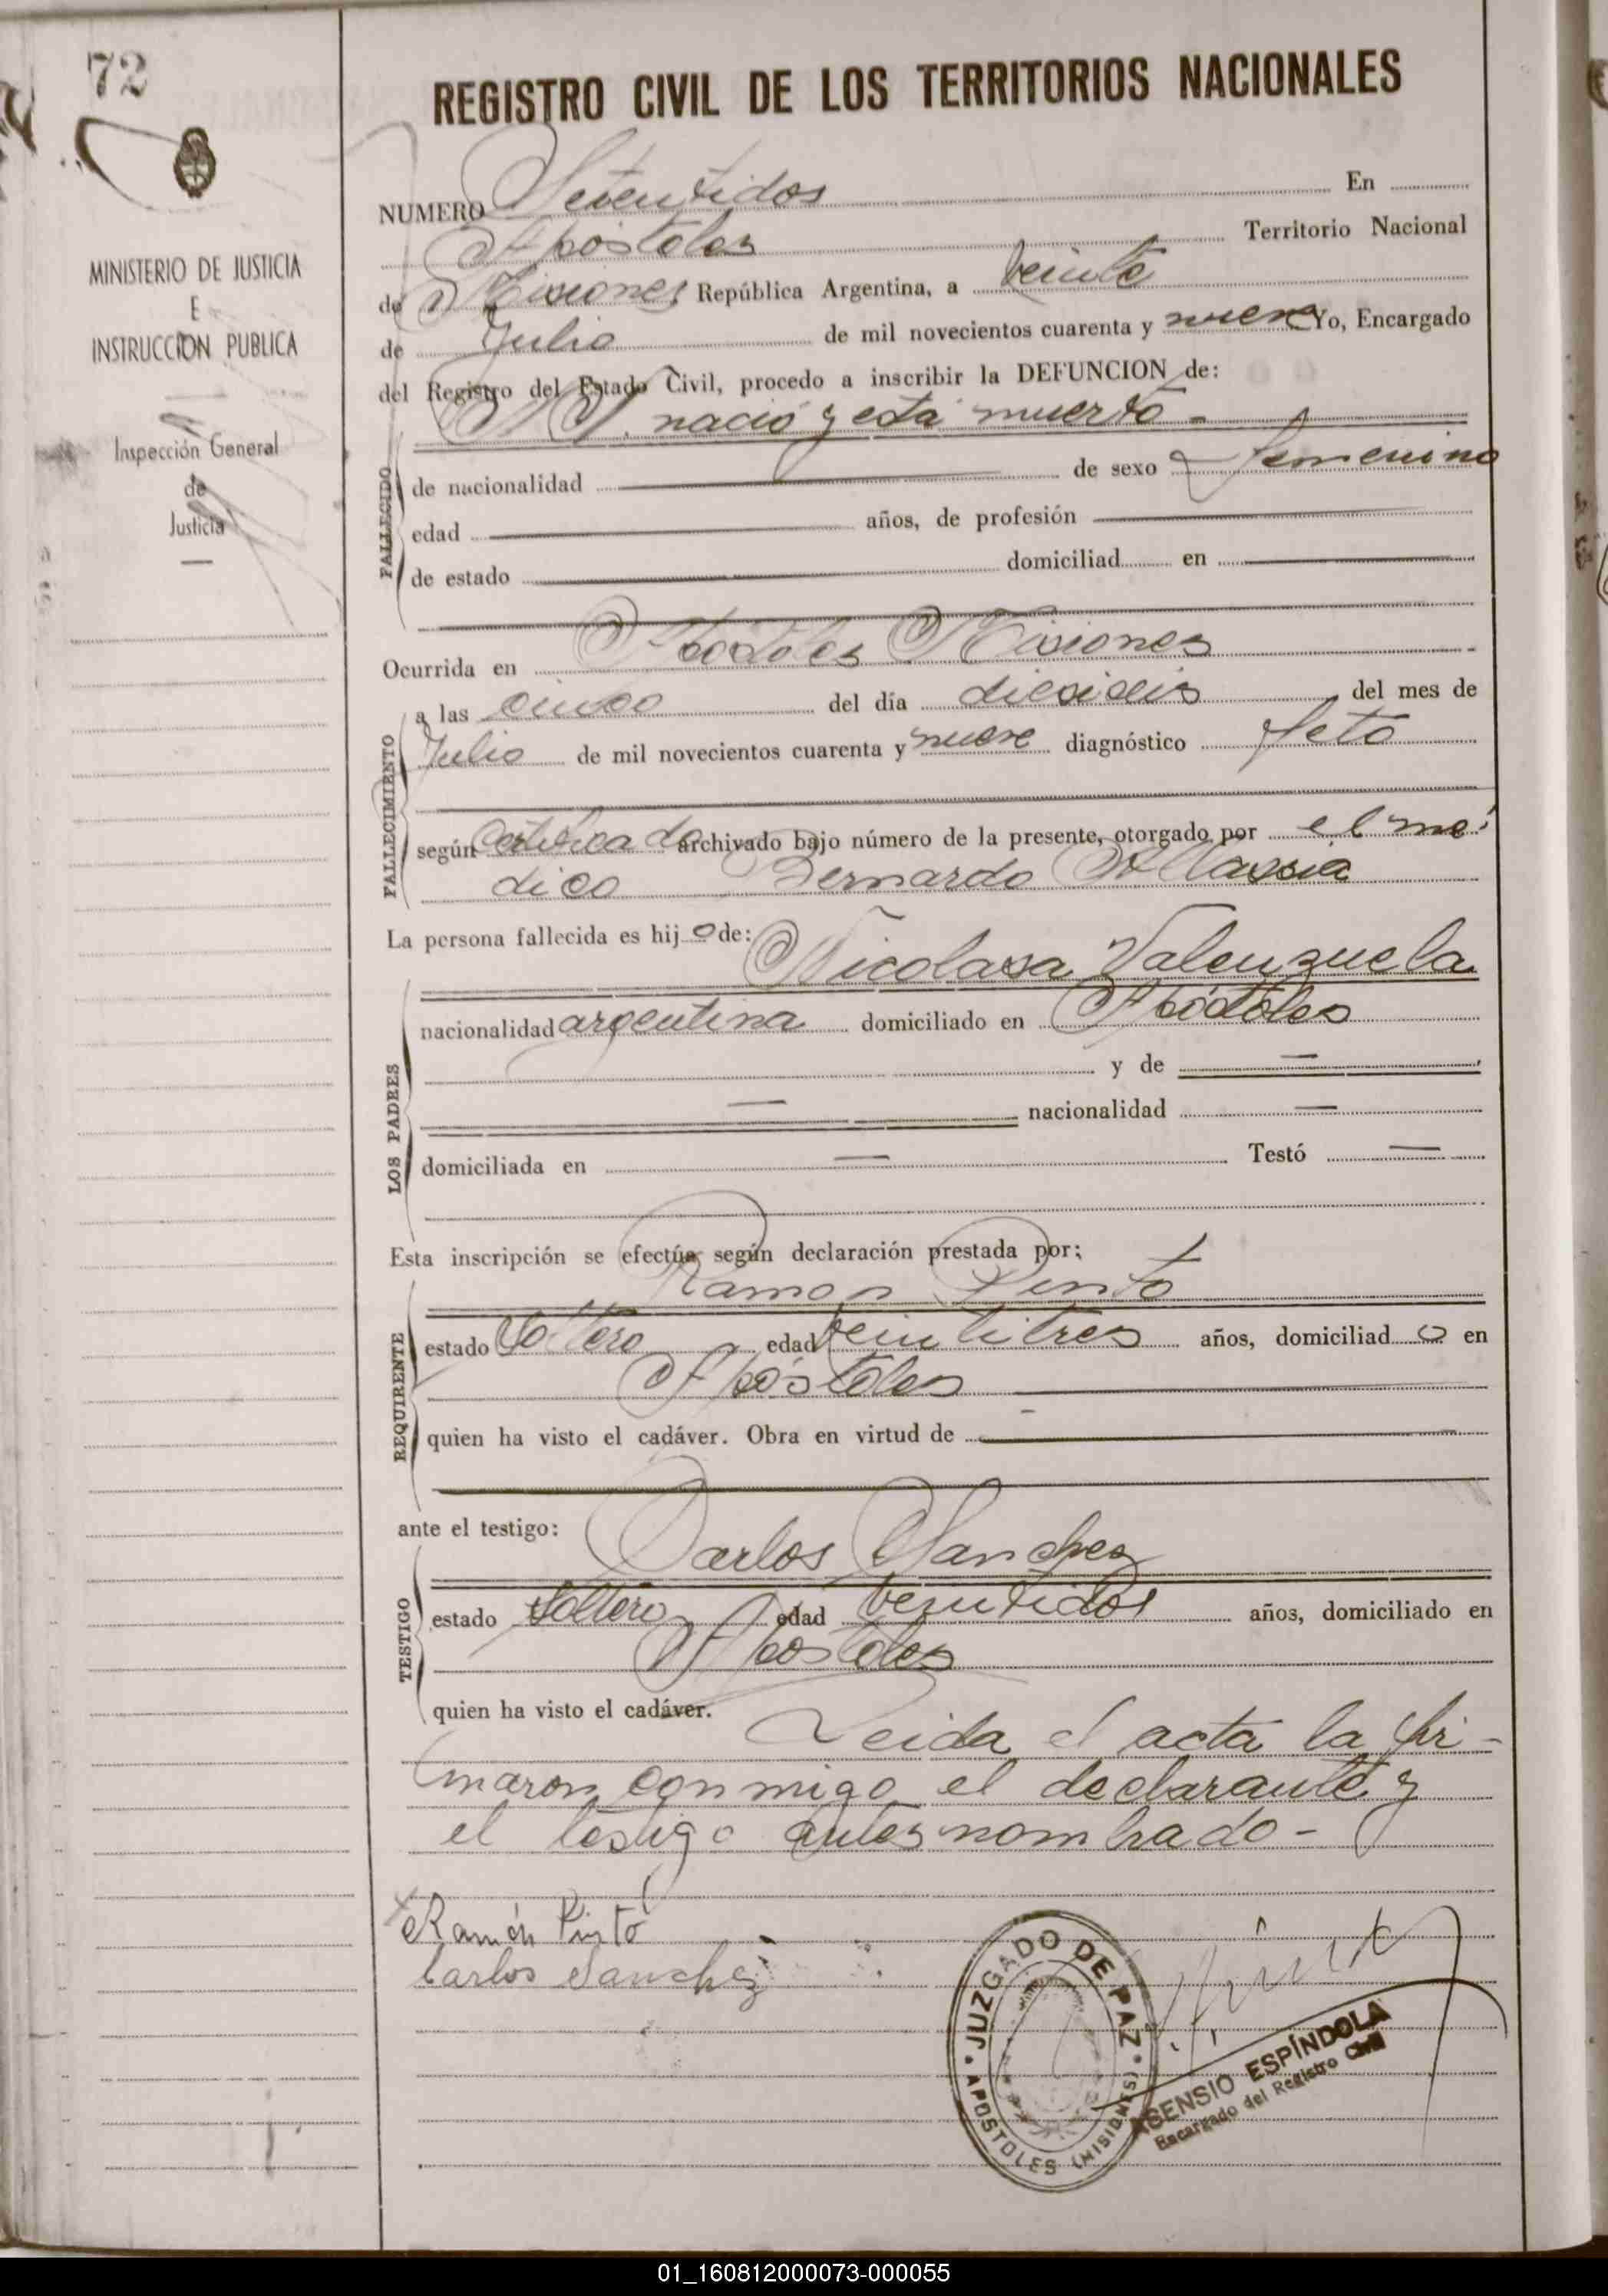 72
REGISTRO CIVIL DE LOS TERRITORIOS NACIONALES
MINISTERIO DE JUSTICIA
E
INSTRUCCION PUBLICA
Inspección General
de
Justicia
NUMERO Setentidos En
Apóstoles Territorio Nacional
de Misiones República Argentina, a veinte
de Julio de mil novecientos cuarenta y nueve Yo, Encargado
del Registro del Estado Civil, procedo a inscribir la DEFUNCION de:
N N. nació y está muerto -
FALLECIDO
de nacionalidad de sexo femenino
edad años, de profesión
de estado domiciliad en
Ocurrida en Apóstoles Misiones
FALLECIMIENTO
a las cinco del día dieciseis del mes de
Julio de mil novecientos cuarenta y nueve diagnóstico feto
según certificado archivado bajo número de la presente, otorgado por el mé-
dico Bernardo
La persona fallecida es hij o de:
Nicolasa Valenzuela
LOS PADRES
nacionalidad argentina domiciliado en Apóstoles
y de —
— nacionalidad —
domiciliada en — Testó —
Esta inscripción se efectúa según declaración prestada por:
Ramon Pinto
REQUIRENTE
estado Soltero edad veintitres años, domiciliad o en
Apóstoles
quien ha visto el cadáver. Obra en virtud de
ante el testigo:
Carlos Sanchez
TESTIGO
estado Soltero edad veintidos años, domiciliado en
Apóstoles
quien ha visto el cadáver.
Leida el acta la fir-
maron conmigo el declarante y
el testigo antes nombrado -
Ramón Pinto
Carlos Sanchez
JUZGADO DE PAZ
APOSTOLES (MISIONES)
ASENSIO ESPÍNDOLA
Encargado del Registro Civil
01_160812000073-000055